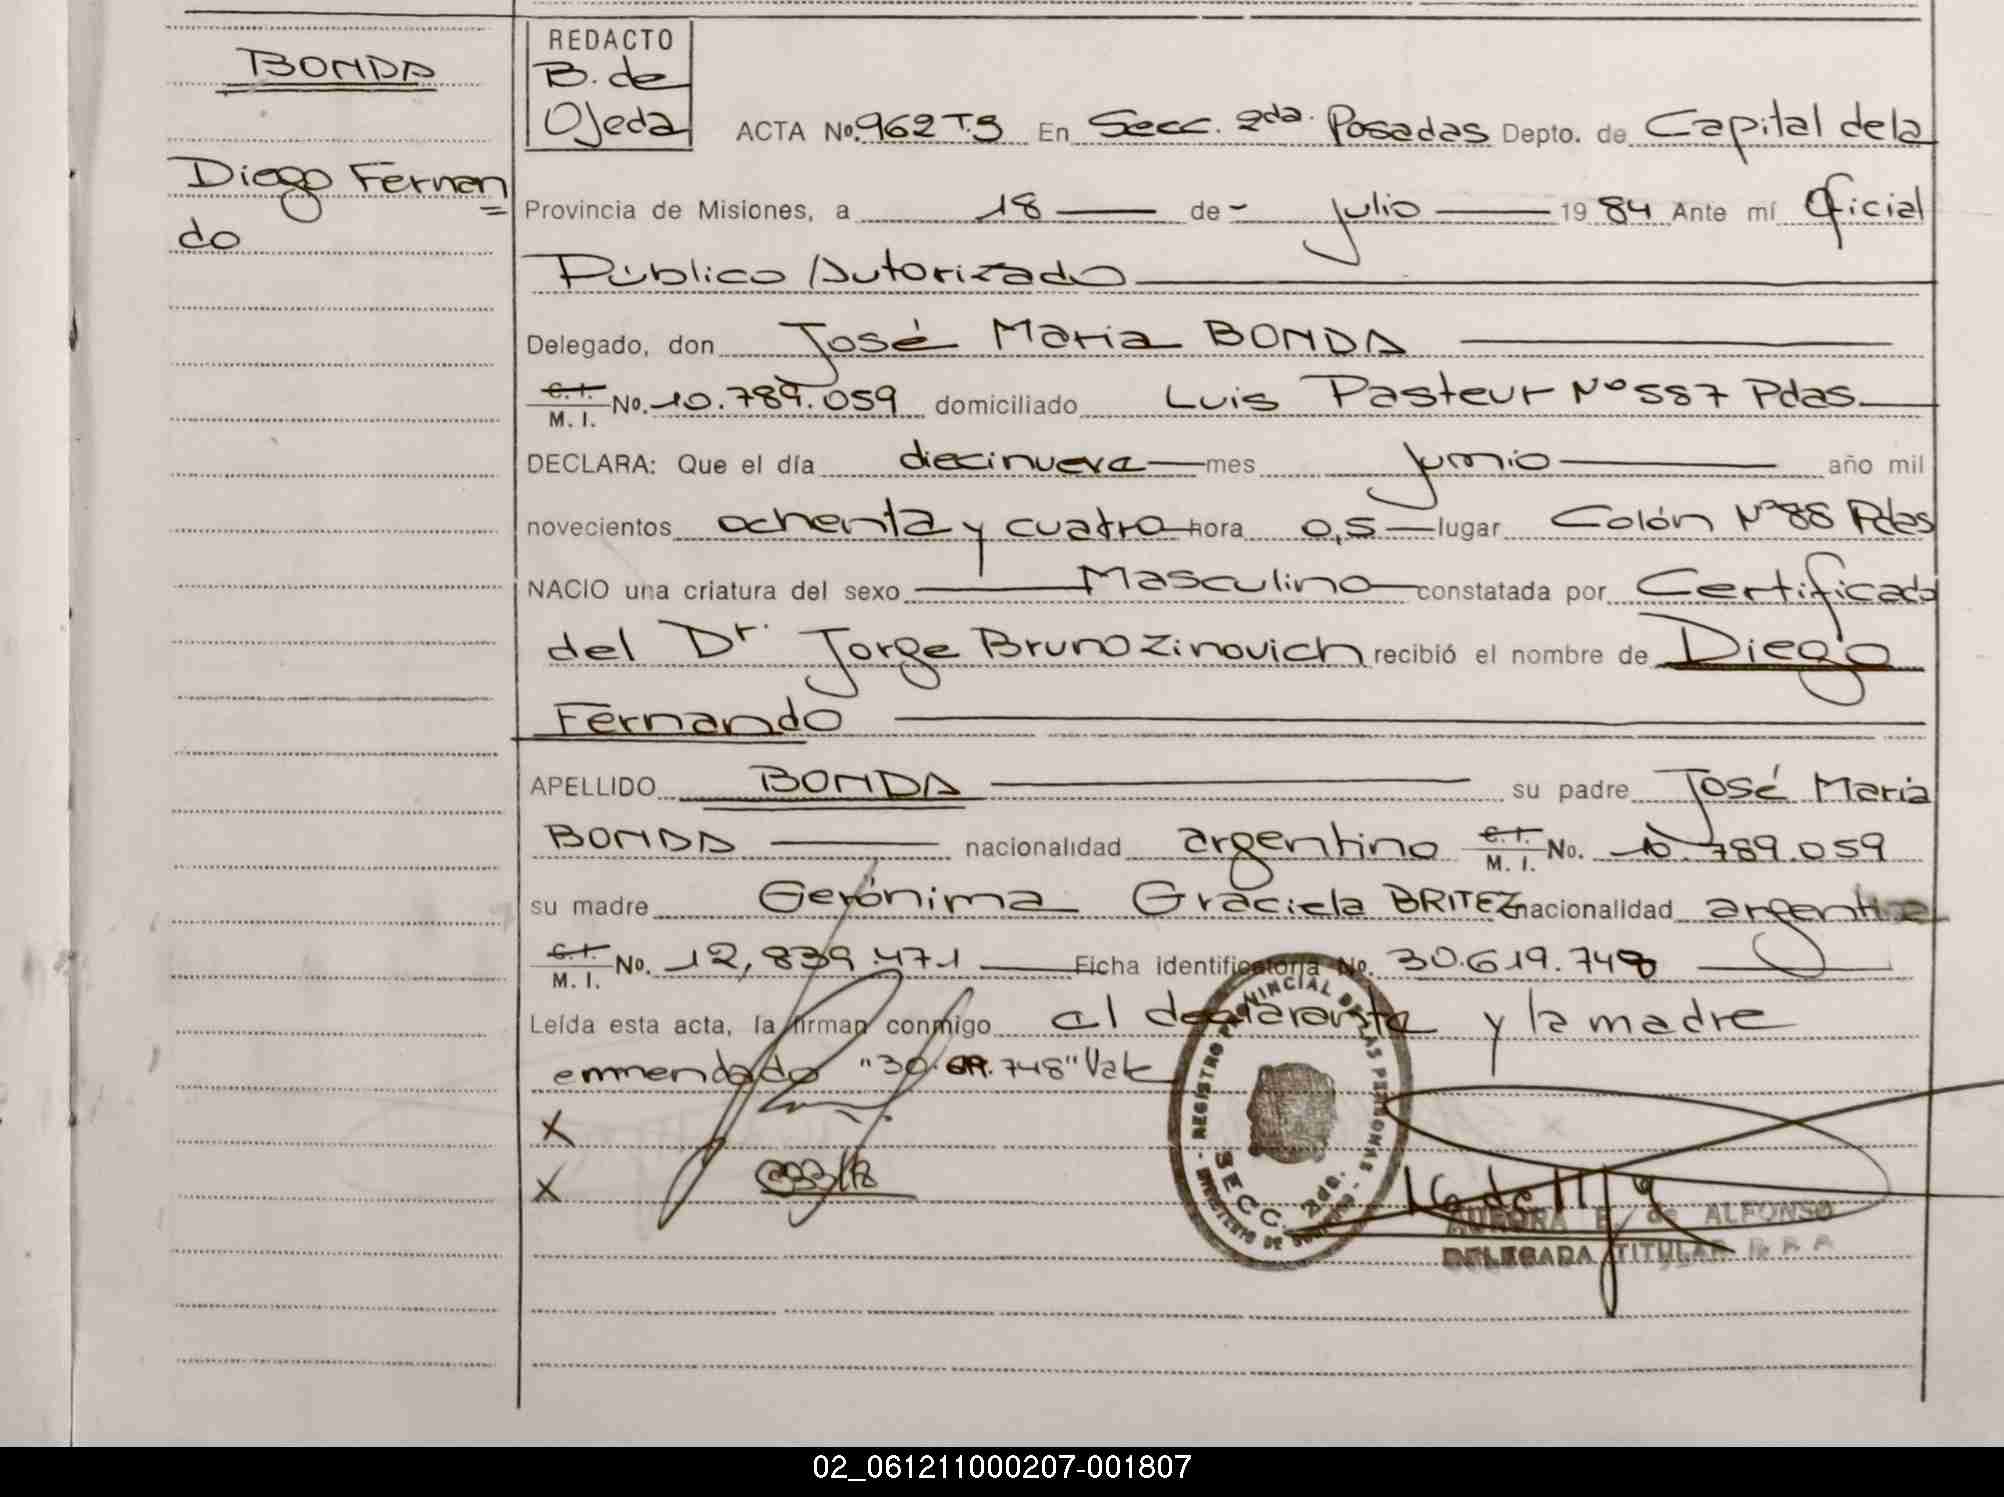 BONDA
Diego Fernan
do
REDACTO
B. de
Ojeda
ACTA No. 962 T.3 En Secc. 2da. Posadas Depto. de Capital de la
Provincia de Misiones, a 18 de julio 19 84 Ante mí Oficial
Público Autorizado
Delegado, don José Maria BONDA
C.I. M. I. No. 10.789.059 domiciliado Luis Pasteur Nº 587 Pdas.
DECLARA: Que el día diecinueve mes junio año mil
novecientos ochenta y cuatro hora 0,5 lugar Colón Nº 88 Pdas
NACIO una criatura del sexo Masculino constatada por Certificado
del Dr. Jorge Bruno Zinovich recibió el nombre de Diego
Fernando
APELLIDO BONDA su padre José Maria
BONDA nacionalidad argentino C.I. M. I. No. 10.789.059
su madre Gerónima Graciela BRITEZ nacionalidad argentina
C.I. M. I. No. 12,839.471 Ficha identificatoria No. 30.619.748
Leída esta acta, la firman conmigo el declarante y la madre
enmendado "30.619.748" Vale
X
X
REGISTRO PROVINCIAL DE LAS PERSONAS
SECC. 2da.
AURORA E. de ALFONSO
DELEGADA TITULAR
02_061211000207-001807